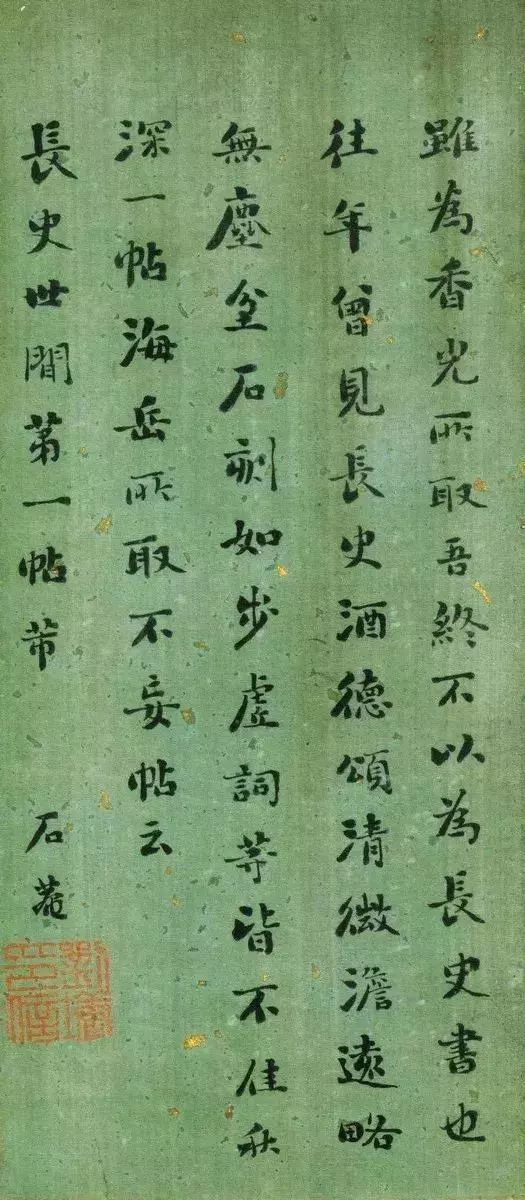 雖為香光所取吾終不以為長史書也
往年曾見長史酒德頌清微澹遠略
無塵坌石刻如步虛詞等皆不佳秋
深一帖海岳所取不妄帖云
長史世間第一帖芾
石菴
劉墉
印信